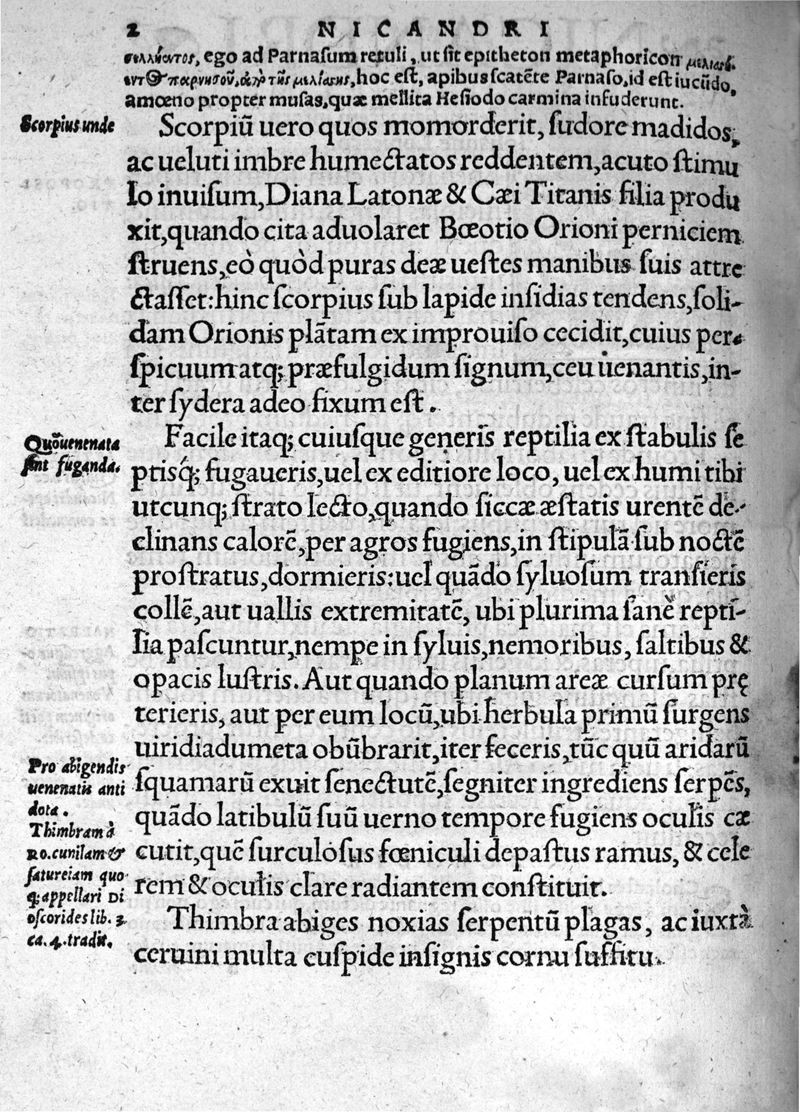 2 NICANDRI
ego ad Parnaſum retuli, ut ſit epitheton metaphoricon
hoc eſt, apibus ſcatēte Parnaſo, id eſt iucūdo,
amœno propter muſas, quæ mellita Heſiodo carmina infuderunt.
Scorpius unde
Scorpiū uero quos momorderit, ſudore madidos,
ac ueluti imbre humectatos reddentem, acuto ſtimu
lo inuiſum, Diana Latonæ & Cæi Titanis filia produ
xit, quando cita aduolaret Bœotio Orioni perniciem
ſtruens, eò quòd puras deæ ueſtes manibus ſuis attre
ctaſſet: hinc ſcorpius ſub lapide inſidias tendens, ſoli-
dam Orionis plātam ex improuiſo cecidit, cuius per-
ſpicuum atq; præfulgidum ſignum, ceu uenantis, in-
ter ſydera adeo fixum eſt.
Quō uenenata
ſint fuganda.
Facile itaq; cuiuſque generis reptilia ex ſtabulis ſe
ptisq́; fugaueris, uel ex editiore loco, uel ex humi tibi
utcunq; ſtrato lecto, quando ſiccæ æſtatis urentē de-
clinans calorē, per agros fugiens, in ſtipulā ſub noctē
proſtratus, dormieris: uel quādo ſyluoſum tranſieris
collē, aut uallis extremitatē, ubi plurima ſanè repti-
lia paſcuntur, nempe in ſyluis, nemoribus, ſaltibus &
opacis luſtris. Aut quando planum areæ curſum prę
terieris, aut per eum locū, ubi herbula primū ſurgens
uiridia dumeta obūbrarit, iter feceris, tūc quū aridarū
ſquamarū exuit ſenectutē, ſegniter ingrediens ſerpēs,
quādo latibulū ſuū uerno tempore fugiens oculis cæ
cutit, quē ſurculoſus fœniculi depaſtus ramus, & cele
rem & oculis clare radiantem conſtituit.
Pro abigendis
uenenatis anti
dota.
Thimbram à
RO. cunilam &
ſatureiam quo
q; appellari DI
oſcorides lib. 3.
ca. 4. tradit.
Thimbra abiges noxias ſerpentū plagas, ac iuxtà
ceruini multa cuſpide inſignis cornu ſuffitu.